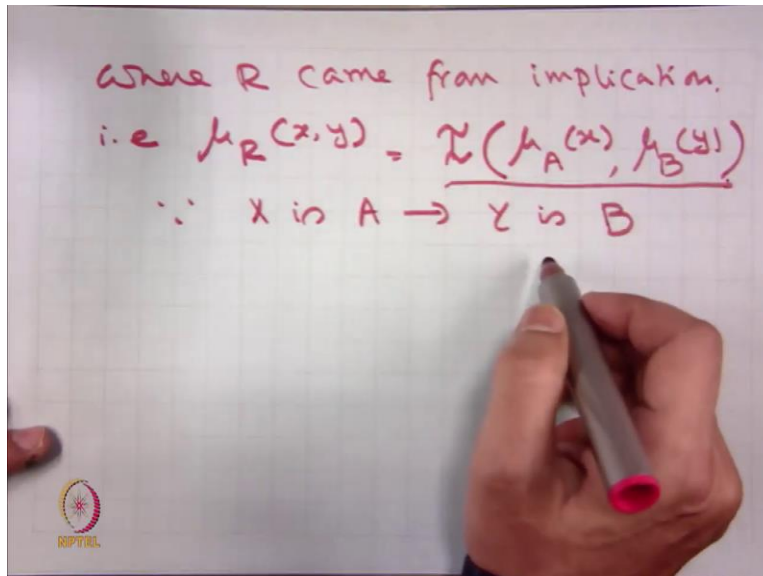 where R came from implication.
i.e μ_R (x, y) = I (μ_A (x), μ_B (y))
∵ X is A → Y is B
NPTEL